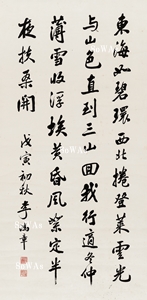 東海如碧環西北捲登萊雲光
与山色直到三山回我行適冬仲
薄雪收浮埃黃昏風絮定半
夜扶桑開
戊寅初秋李鴻章